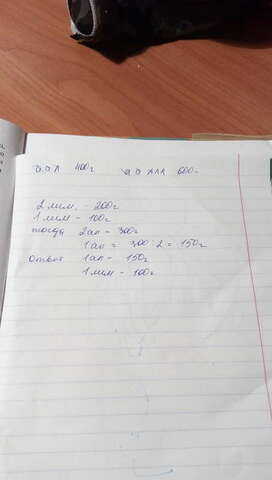 а а л 400г а а л л л 600г
2 лим. - 200г
1 лим - 100г
тогда 2ап - 300г
1 ап = 300:2 = 150г
Ответ 1 ап - 150г
1 лим - 100г